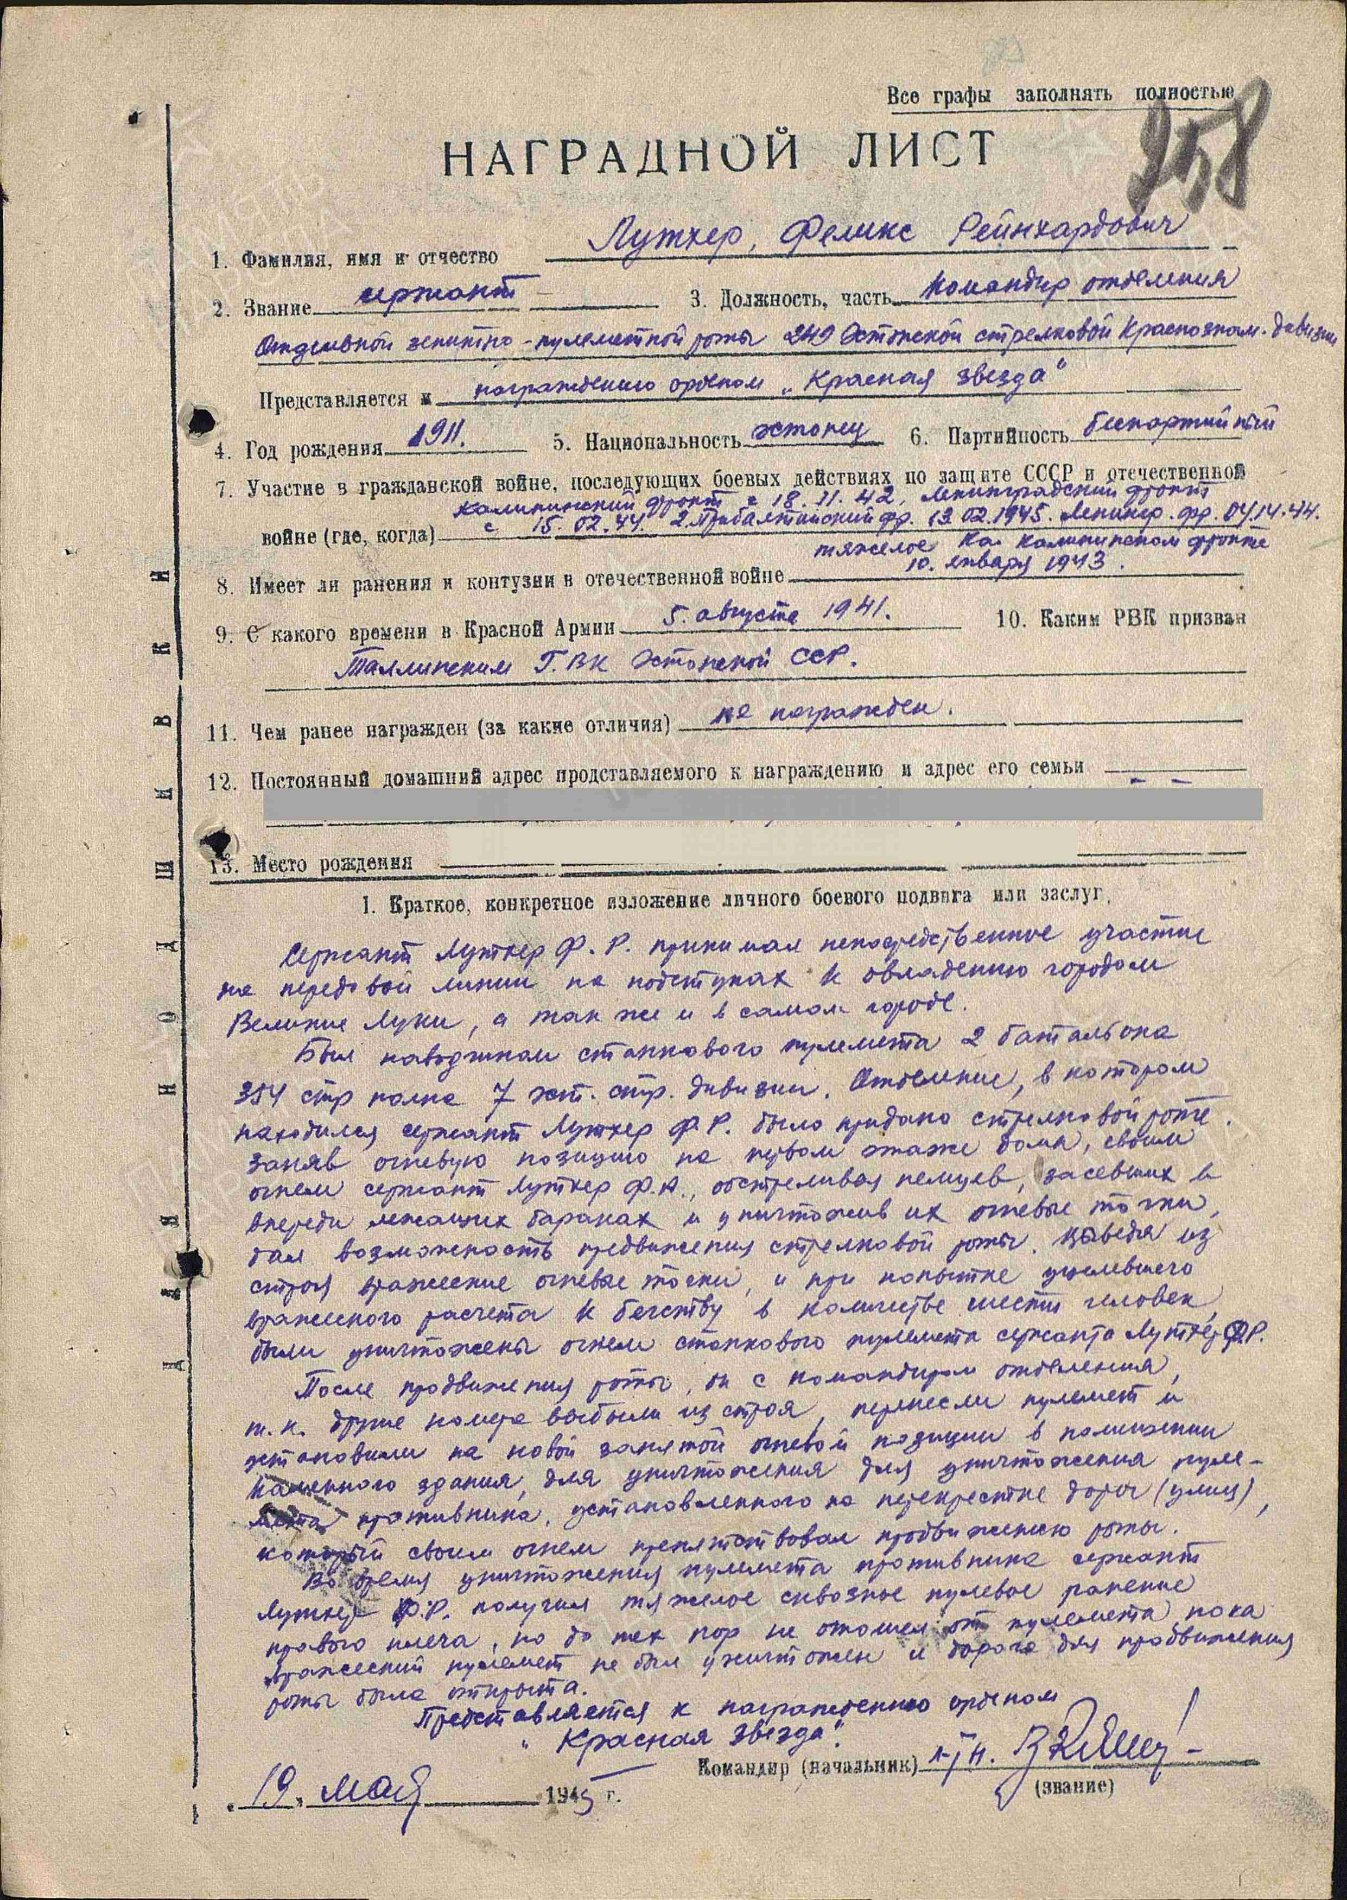 Все графы заполнять полностью
258
НАГРАДНОЙ ЛИСТ
1. Фамилия, имя и отчество Луткер, Феликс Рейнхардович
2. Звание сержант 3. Должность, часть Командир отделения
Отдельной зенитно-пулеметной роты 249 Эстонской стрелковой Краснознам. дивизии
Представляется к награждению орденом „Красная звезда"
4. Год рождения 1911. 5. Национальность эстонец 6. Партийность беспартийный
7. Участие в гражданской войне, последующих боевых действиях по защите СССР и отечественной
Калининский фронт с 18.11.42, Ленинградский фронт
войне (где, когда) с 15.02.44. 2 Прибалтийский фр. 13.02.1945. Ленингр. фр.
тяжелое на Калининском фронте
8. Имеет ли ранения и контузии в отечественной войне 10. января 1943.
9. С какого времени в Красной Армии 5. августа 1941. 10. Каким РВК призван
Таллинским Г.ВК Эстонской ССР.
11. Чем ранее награжден (за какие отличия) не награжден.
12. Постоянный домашний адрес продставляемого к награждению и адрес его семьи
13. Место рождения
1. Краткое, конкретное изложение личного боевого подвига или заслуг,
Сержант Луткер Ф.Р. принимал непосредственное участие
на передовой линии на подступах к овладению городом
Великие Луки, а так же и в самом городе.
Был наводчиком станкового пулемета 2 батальона
354 стр полка 7 эст. стр. дивизии. Отделение, в котором
находился сержант Луткер Ф.Р. было придано стрелковой роте.
Заняв огневую позицию на первом этаже дома, своим
огнем сержант Луткер Ф.Р., обстреливая немцев, засевших в
впереди лежащих бараках и уничтожив их огневые точки,
дал возможность продвижения стрелковой роты. Выведя из
строя вражеские огневые точки, и при попытке уцелевшего
вражеского расчета к бегству в количестве шести человек,
были уничтожены огнем станкового пулемета сержанта Луткер Ф.Р.
После продвижения роты, он с командиром отделения,
т.к. другие номера выбыли из строя, перенесли пулемет и
установили на новой занятой огневой позиции в помещении
каменного здания, для уничтожения для уничтожения пуле-
мета противника, установленного на перекрестке дорог (улиц),
который своим огнем препятствовал продвижению роты.
Во время уничтожения пулемета противника сержант
Луткер Ф.Р. получил тяжелое сквозное пулевое ранение
правого плеча, но до тех пор не отошел от пулемета, пока
вражеский пулемет не был уничтожен и дорога для продвижения
роты была открыта.
Представляется к награждению орденом
„Красная звезда".
Командир (начальник)
(звание)
„19„ мая 1945 г.
ДЛЯ ПОДШИВКИ
ПАМЯТЬ
НАРОДА